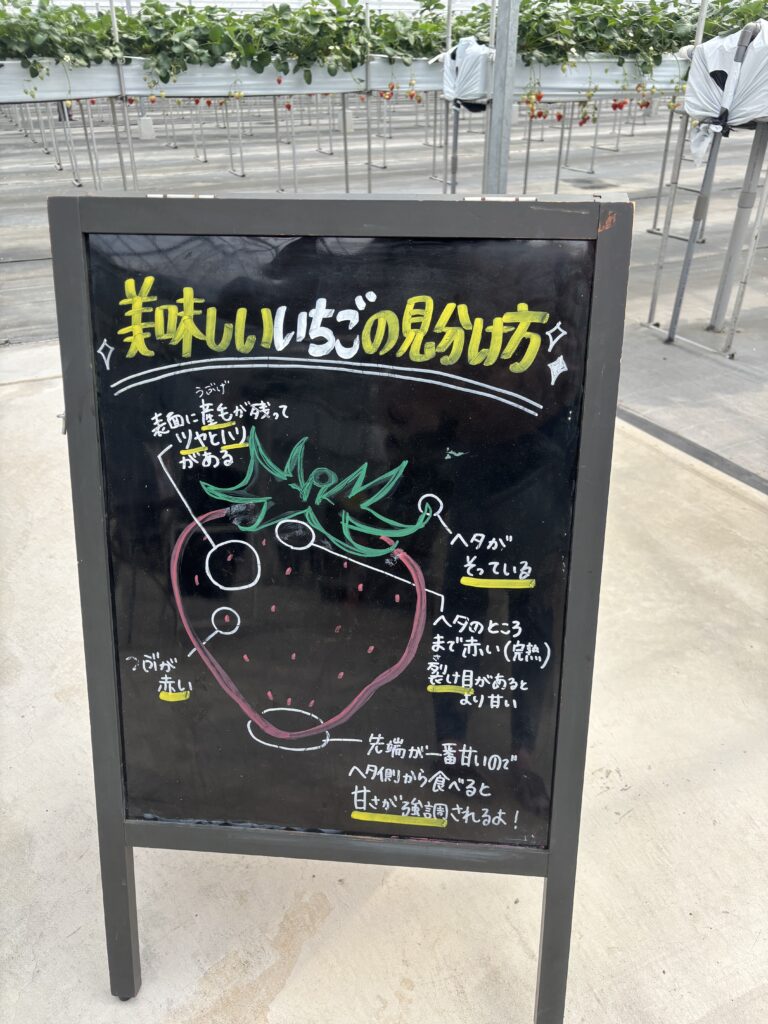 美味しいいちごの見分け方
うぶげ
表面に産毛が残って
ツヤとハリ
がある
ヘタが
そっている
ヘタのところ
まで赤い(完熟)
さ
裂け目があると
より甘い
つぶが
赤い
先端が一番甘いので
ヘタ側から食べると
甘さが強調されるよ!